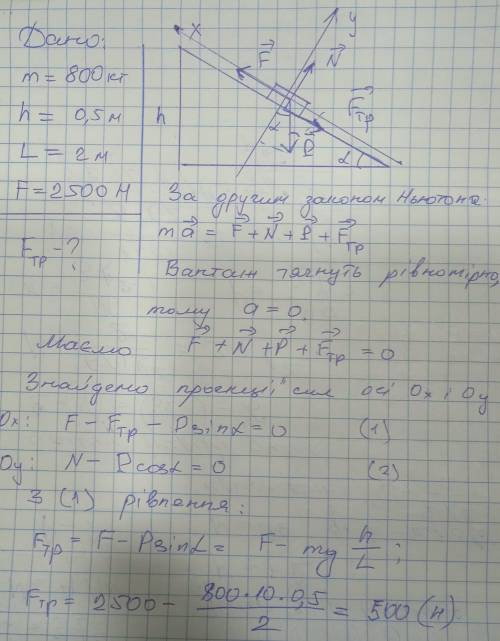 Дано:
m = 800 кг
h = 0,5 м
L = 2 м
F = 2500 Н
Fтр - ?
x
y
F
N
h
Fтр
α
P
α
За другим законом Ньютона
ma = F + N + P + Fтр
Вантаж тягнуть рівномірно,
тому a = 0.
Маємо F + N + P + Fтр = 0
Знайдемо проекції сил осі Ox і Oy
Ox: F - Fтр - P sinα = 0 (1)
Oy: N - P cosα = 0 (2)
З (1) рівняння:
Fтр = F - P sinα = F - mg h/L ;
Fтр = 2500 - 800·10·0,5/2 = 500 (Н)